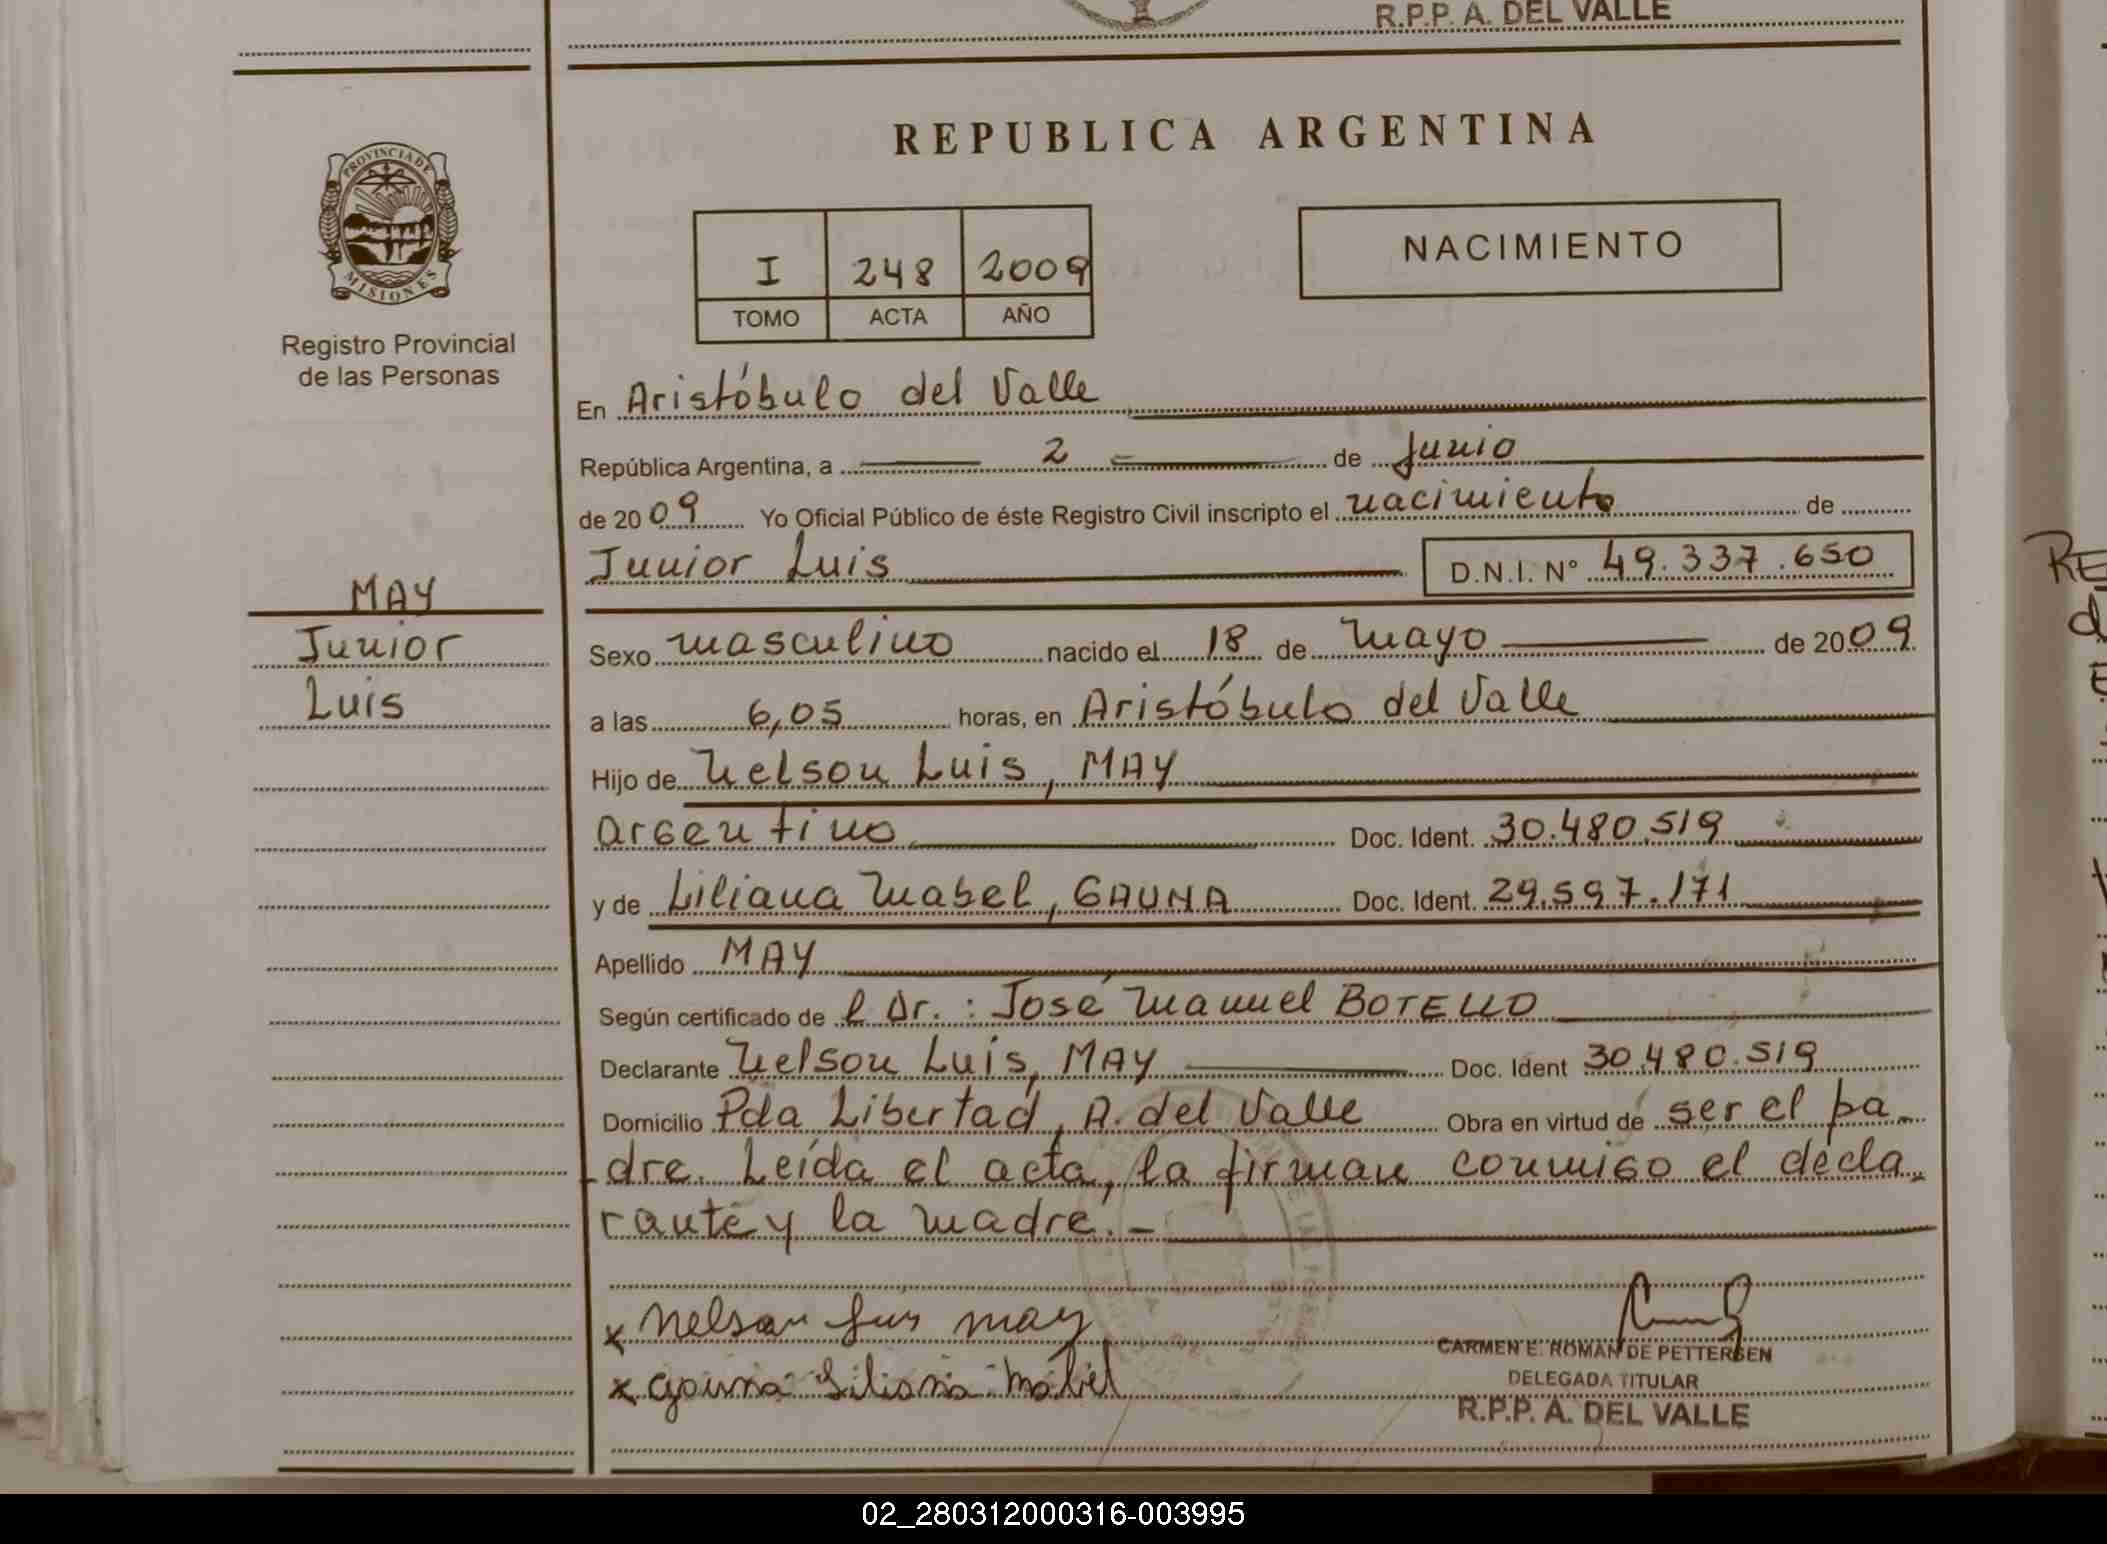 R.P.P. A. DEL VALLE
REPUBLICA ARGENTINA
PROVINCIA DE
MISIONES
Registro Provincial
de las Personas
I 248 2009
TOMO ACTA AÑO
NACIMIENTO
En Aristóbulo del Valle
República Argentina, a 2 de Junio
de 2009 Yo Oficial Público de éste Registro Civil inscripto el nacimiento de
Junior Luis D.N.I. N° 49.337.650
MAY
Junior
Luis
Sexo masculino nacido el 18 de Mayo de 2009
a las 6,05 horas, en Aristóbulo del Valle
Hijo de Nelson Luis, MAY
argentino Doc. Ident. 30.480.519
y de Liliana Mabel, GAUNA Doc. Ident. 29.597.171
Apellido MAY
Según certificado de l Dr.: José Manuel BOTELLO
Declarante Nelson Luis, MAY Doc. Ident 30.480.519
Domicilio Pda Libertad, A. del Valle Obra en virtud de ser el pa-
dre. Leída el acta, la firman conmigo el decla-
rante y la madre.-
x Nelson Luis may
x gauna Liliana Mabel
CARMEN E. ROMAN DE PETTERSEN
DELEGADA TITULAR
R.P.P. A. DEL VALLE
RE
d
E
02_280312000316-003995